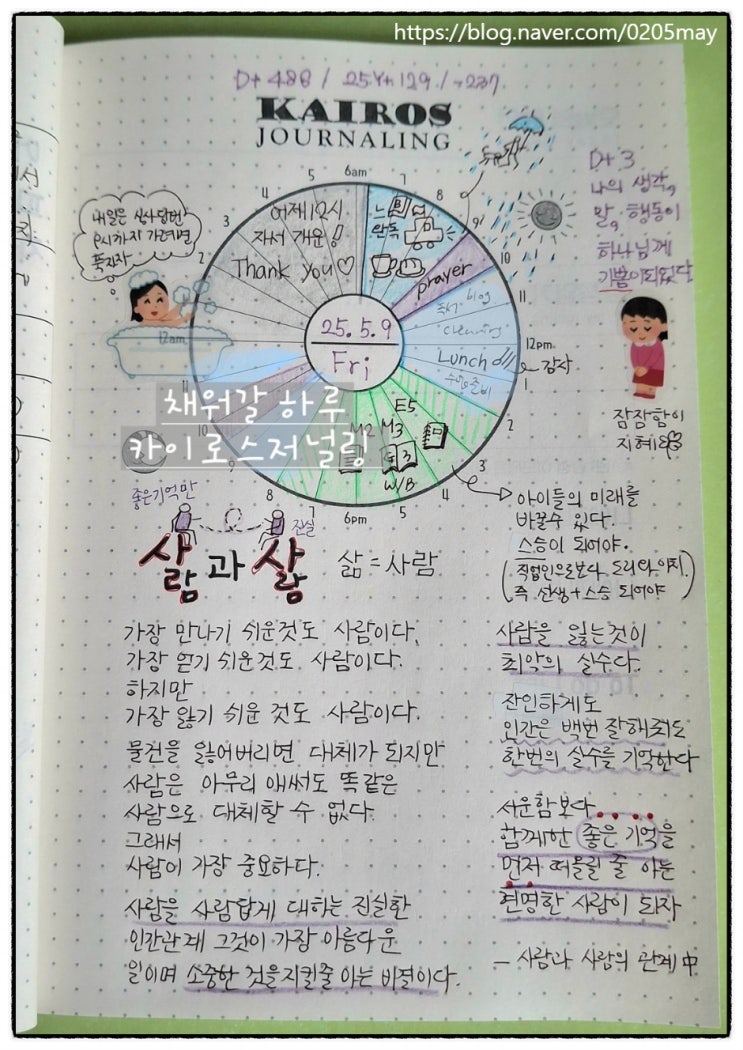 https://blog.naver.com/0205may
D+ 486 / 25.Y+129 / -237.
KAIROS
JOURNALING
6am
7
8
9
10
11
12pm
1
2
3
4
5
6pm
7
8
9
10
12am
2
3
4
5
어제 12시
자서 개운!
Thank you♡
완독
prayer
독서 blog
cleaning
Lunch
수업준비
감사
E5
M2 M3
W/B
25. 5. 9
Fri
채워갈 하루
카이로스저널링
D+3
나의 생각,
말, 행동이
하나님께
기쁨이되었다
잠잠함이
지혜
좋은기억만
진실
사람과 사람
삶 = 사람
아이들의 미래를
바꿀수 있다.
스승이 되어야.
즉 선생+스승 되어야
가장 만나기 쉬운것도 사람이다.
가장 얻기 쉬운것도 사람이다.
하지만
가장 잃기 쉬운 것도 사람이다.
물건을 잃어버리면 대체가 되지만
사람은 아무리 애써도 똑같은
사람으로 대체할 수 없다.
그래서
사람이 가장 중요하다.
사람을 사람답게 대하는 진실한
인간관계 그것이 가장 아름다운
일이며 소중한 것을지킬줄 아는 비결이다.
사람을 잃는것이
최악의 실수다.
잔인하게도
인간은 백번 잘해줘도
한번의 실수를 기억한다
서운함보다
함께한 좋은 기억을
먼저 떠올릴 줄 아는
현명한 사람이 되자
- 사람과 사람의 관계 中